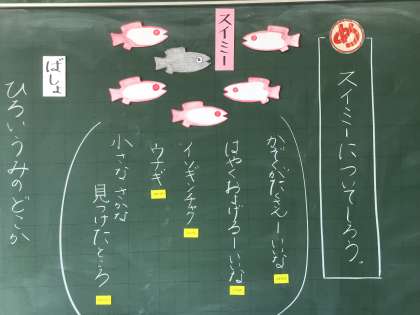 め
スイミーについてしろう。
スイミー
はやくおよげるーいいな
イソギンチャク
ウナギ
小さなさかな
見つけたところ
ばしょ
ひろいうみのどこか